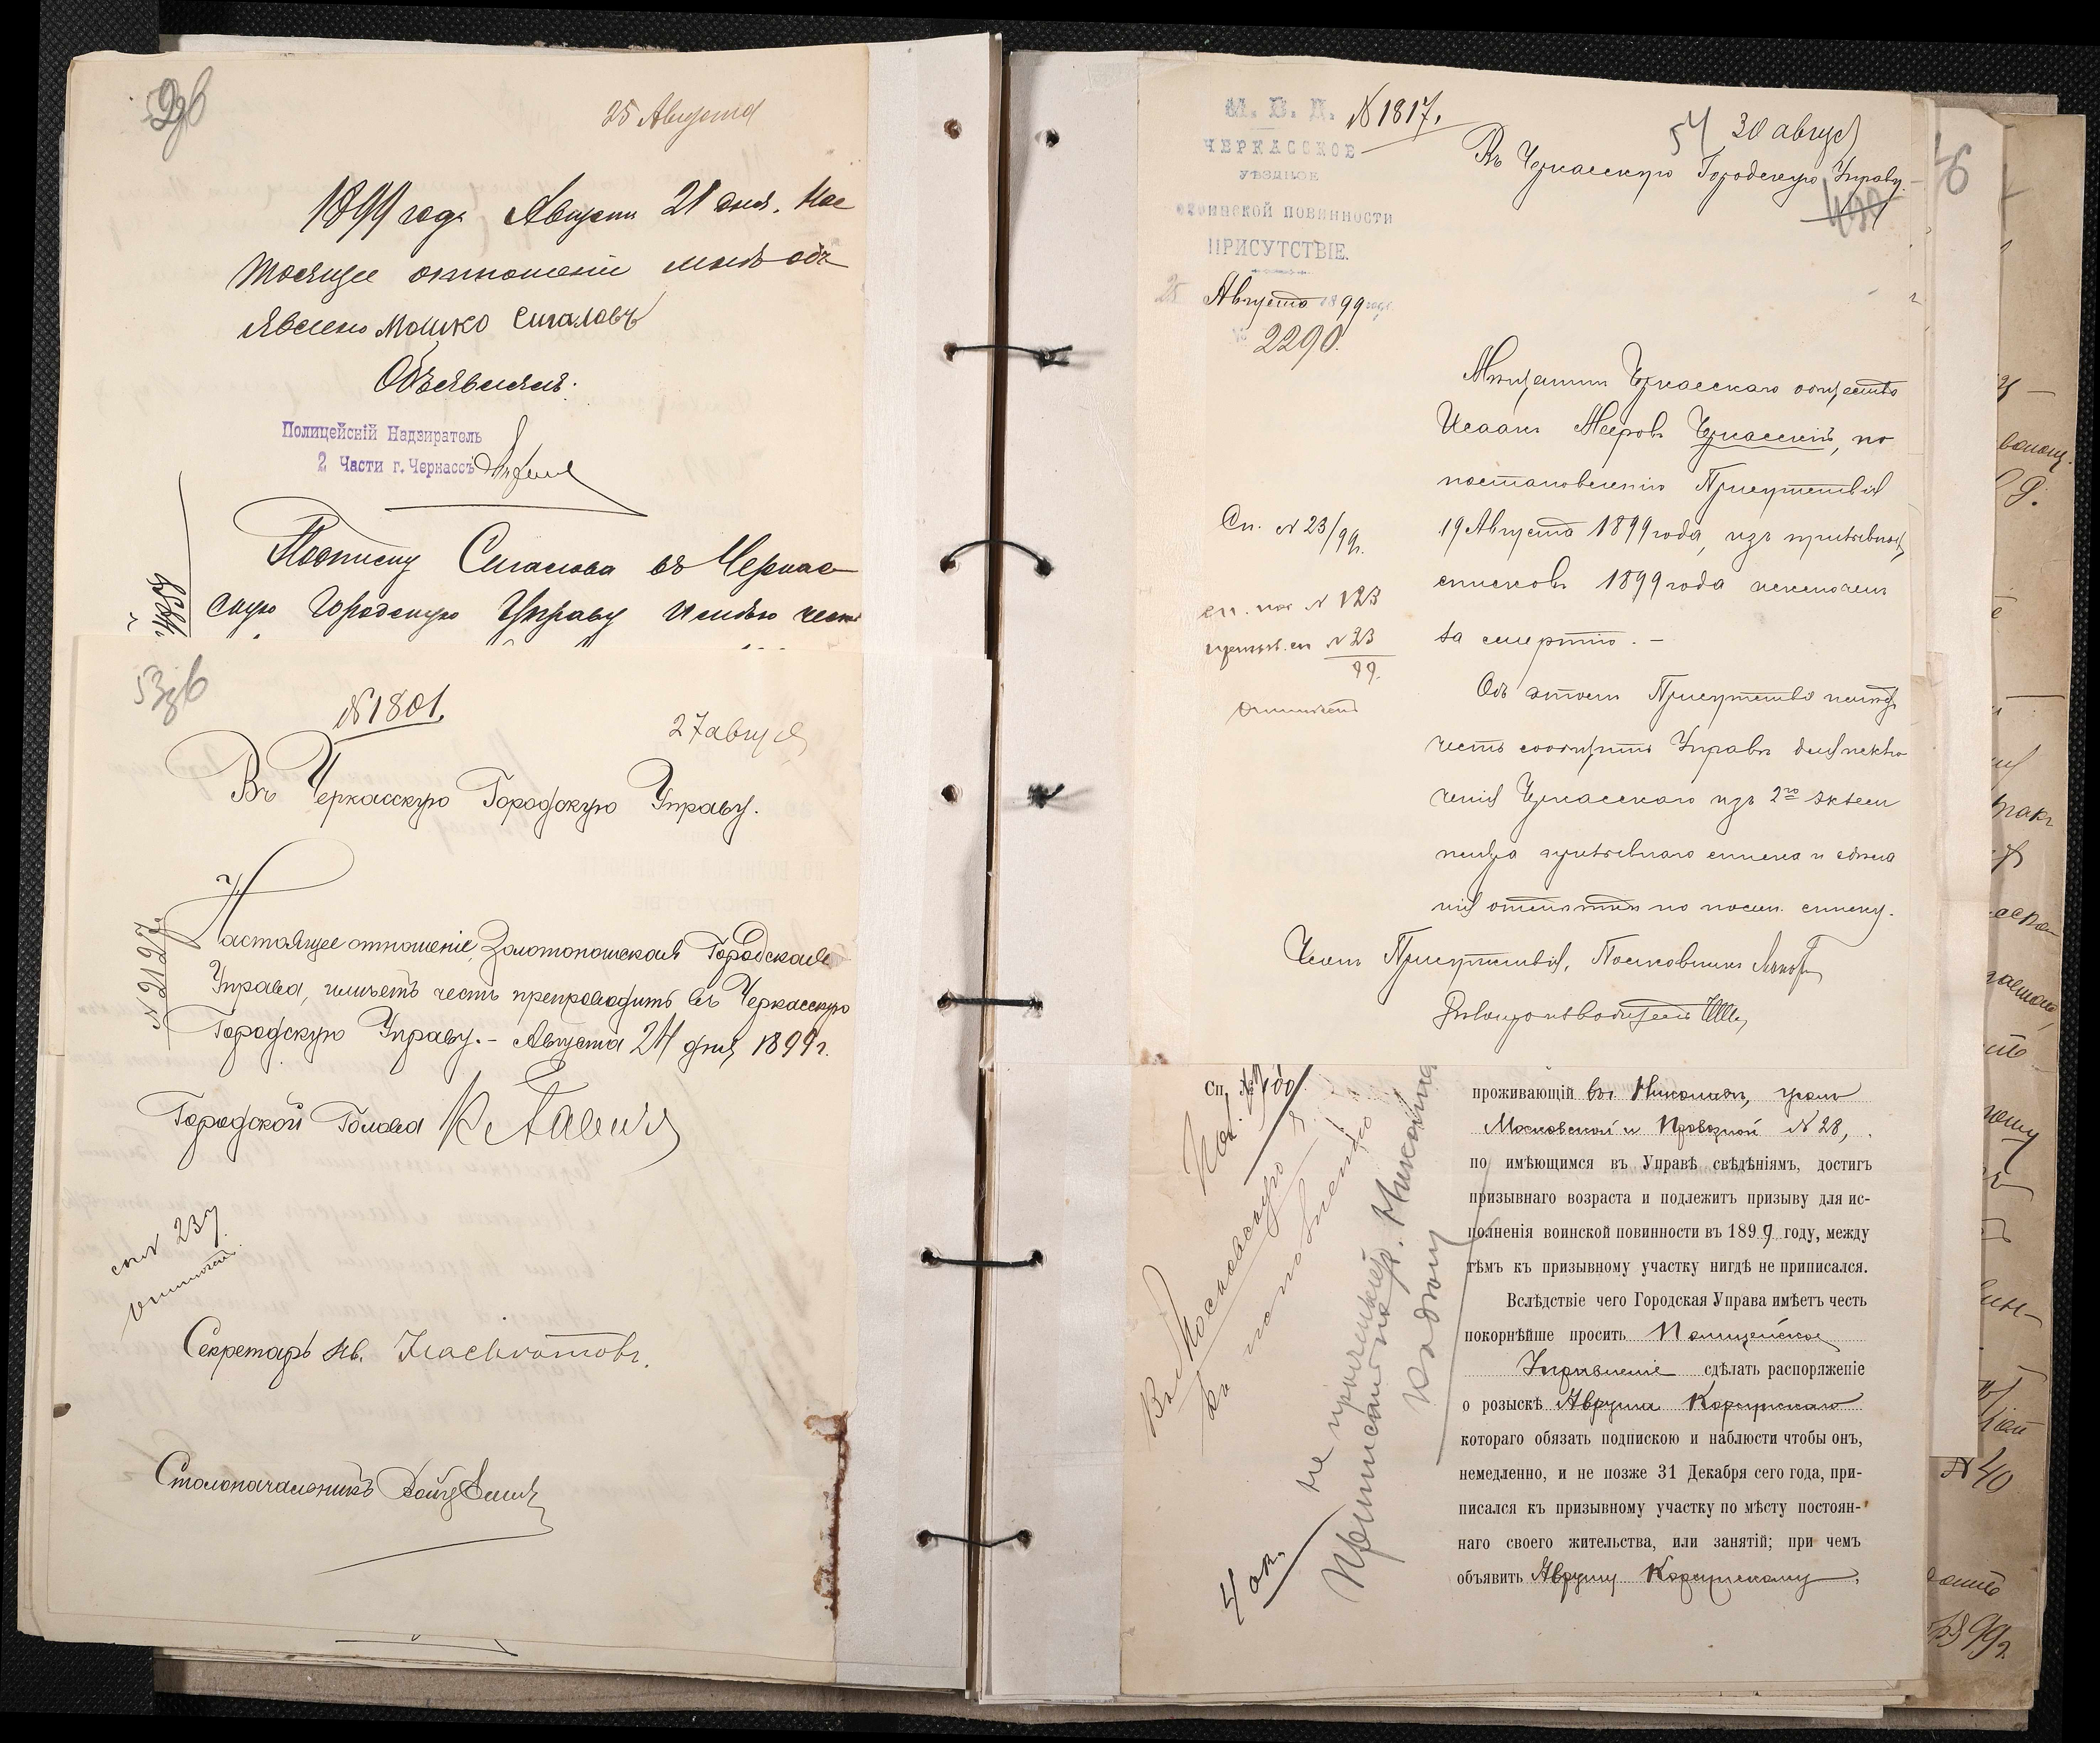 25 Августа
1899 года Августа 21 дня. Нас
тоящее отношение мнѣ объ
явлено Мошко Сигаловъ
Объявилъ:
Полицейскій Надзиратель
2 Части г. Черкассъ
Подписку Сигалова въ Черкас
скую Городскую Управу имѣю честь
№ 1801.
27 август
Въ Черкасскую Городскую Управу.
Настоящее отношеніе, Золотоношская Городская
Управа, имѣетъ честь препроводить въ Черкасскую
Городскую Управу. - Августа 24 дня 1899 г.
№ 2127
Городской Голова
спис 237
отмѣтить
Секретарь
Столоначальникъ
М. В. Д.
ЧЕРКАССКОЕ
УѢЗДНОЕ
воинской повинности
ПРИСУТСТВІЕ.
25 Августа 1899 года
№ 2290.
№ 1817.
54
30 август
Въ Черкасскую Городскую Управу.
Мѣщанинъ Черкасскаго общества
Исаакъ Мееровъ Черкасскій, по
постановленію Присутствія
19 Августа 1899 года, изъ призывныхъ
списковъ 1899 года исключенъ
за смертію. -
Сп. № 23/99 г.
сп. пос № 123
призыв. сп № 23
99.
отмѣтить
Объ этомъ Присутствіе имѣетъ
честь сообщить Управѣ для исклю
ченія Черкасскаго изъ 2го экзем
пляра призывнаго списка и сдѣла
нія отмѣтки по посем. списку.
Членъ Присутствія, Полковникъ
Дѣлопроизводитель
Сп. №
проживающій въ г. Николаевѣ, уголъ
Московской и Привозной № 28,
по имѣющимся въ Управѣ свѣдѣніямъ, достигъ
призывнаго возраста и подлежитъ призыву для ис-
полненія воинской повинности въ 1899 году, между
тѣмъ къ призывному участку нигдѣ не приписался.
Вслѣдствіе чего Городская Управа имѣетъ честь
покорнѣйше просить Полицейское
Управленіе сдѣлать распоряженіе
о розыскѣ Аврума Корсунскаго
котораго обязать подпискою и наблюсти чтобы онъ,
немедленно, и не позже 31 Декабря сего года, при-
писался къ призывному участку по мѣсту постоян-
наго своего жительства, или занятій; при чемъ
объявить Авруму Корсунскому,
4 ок.
№ 40